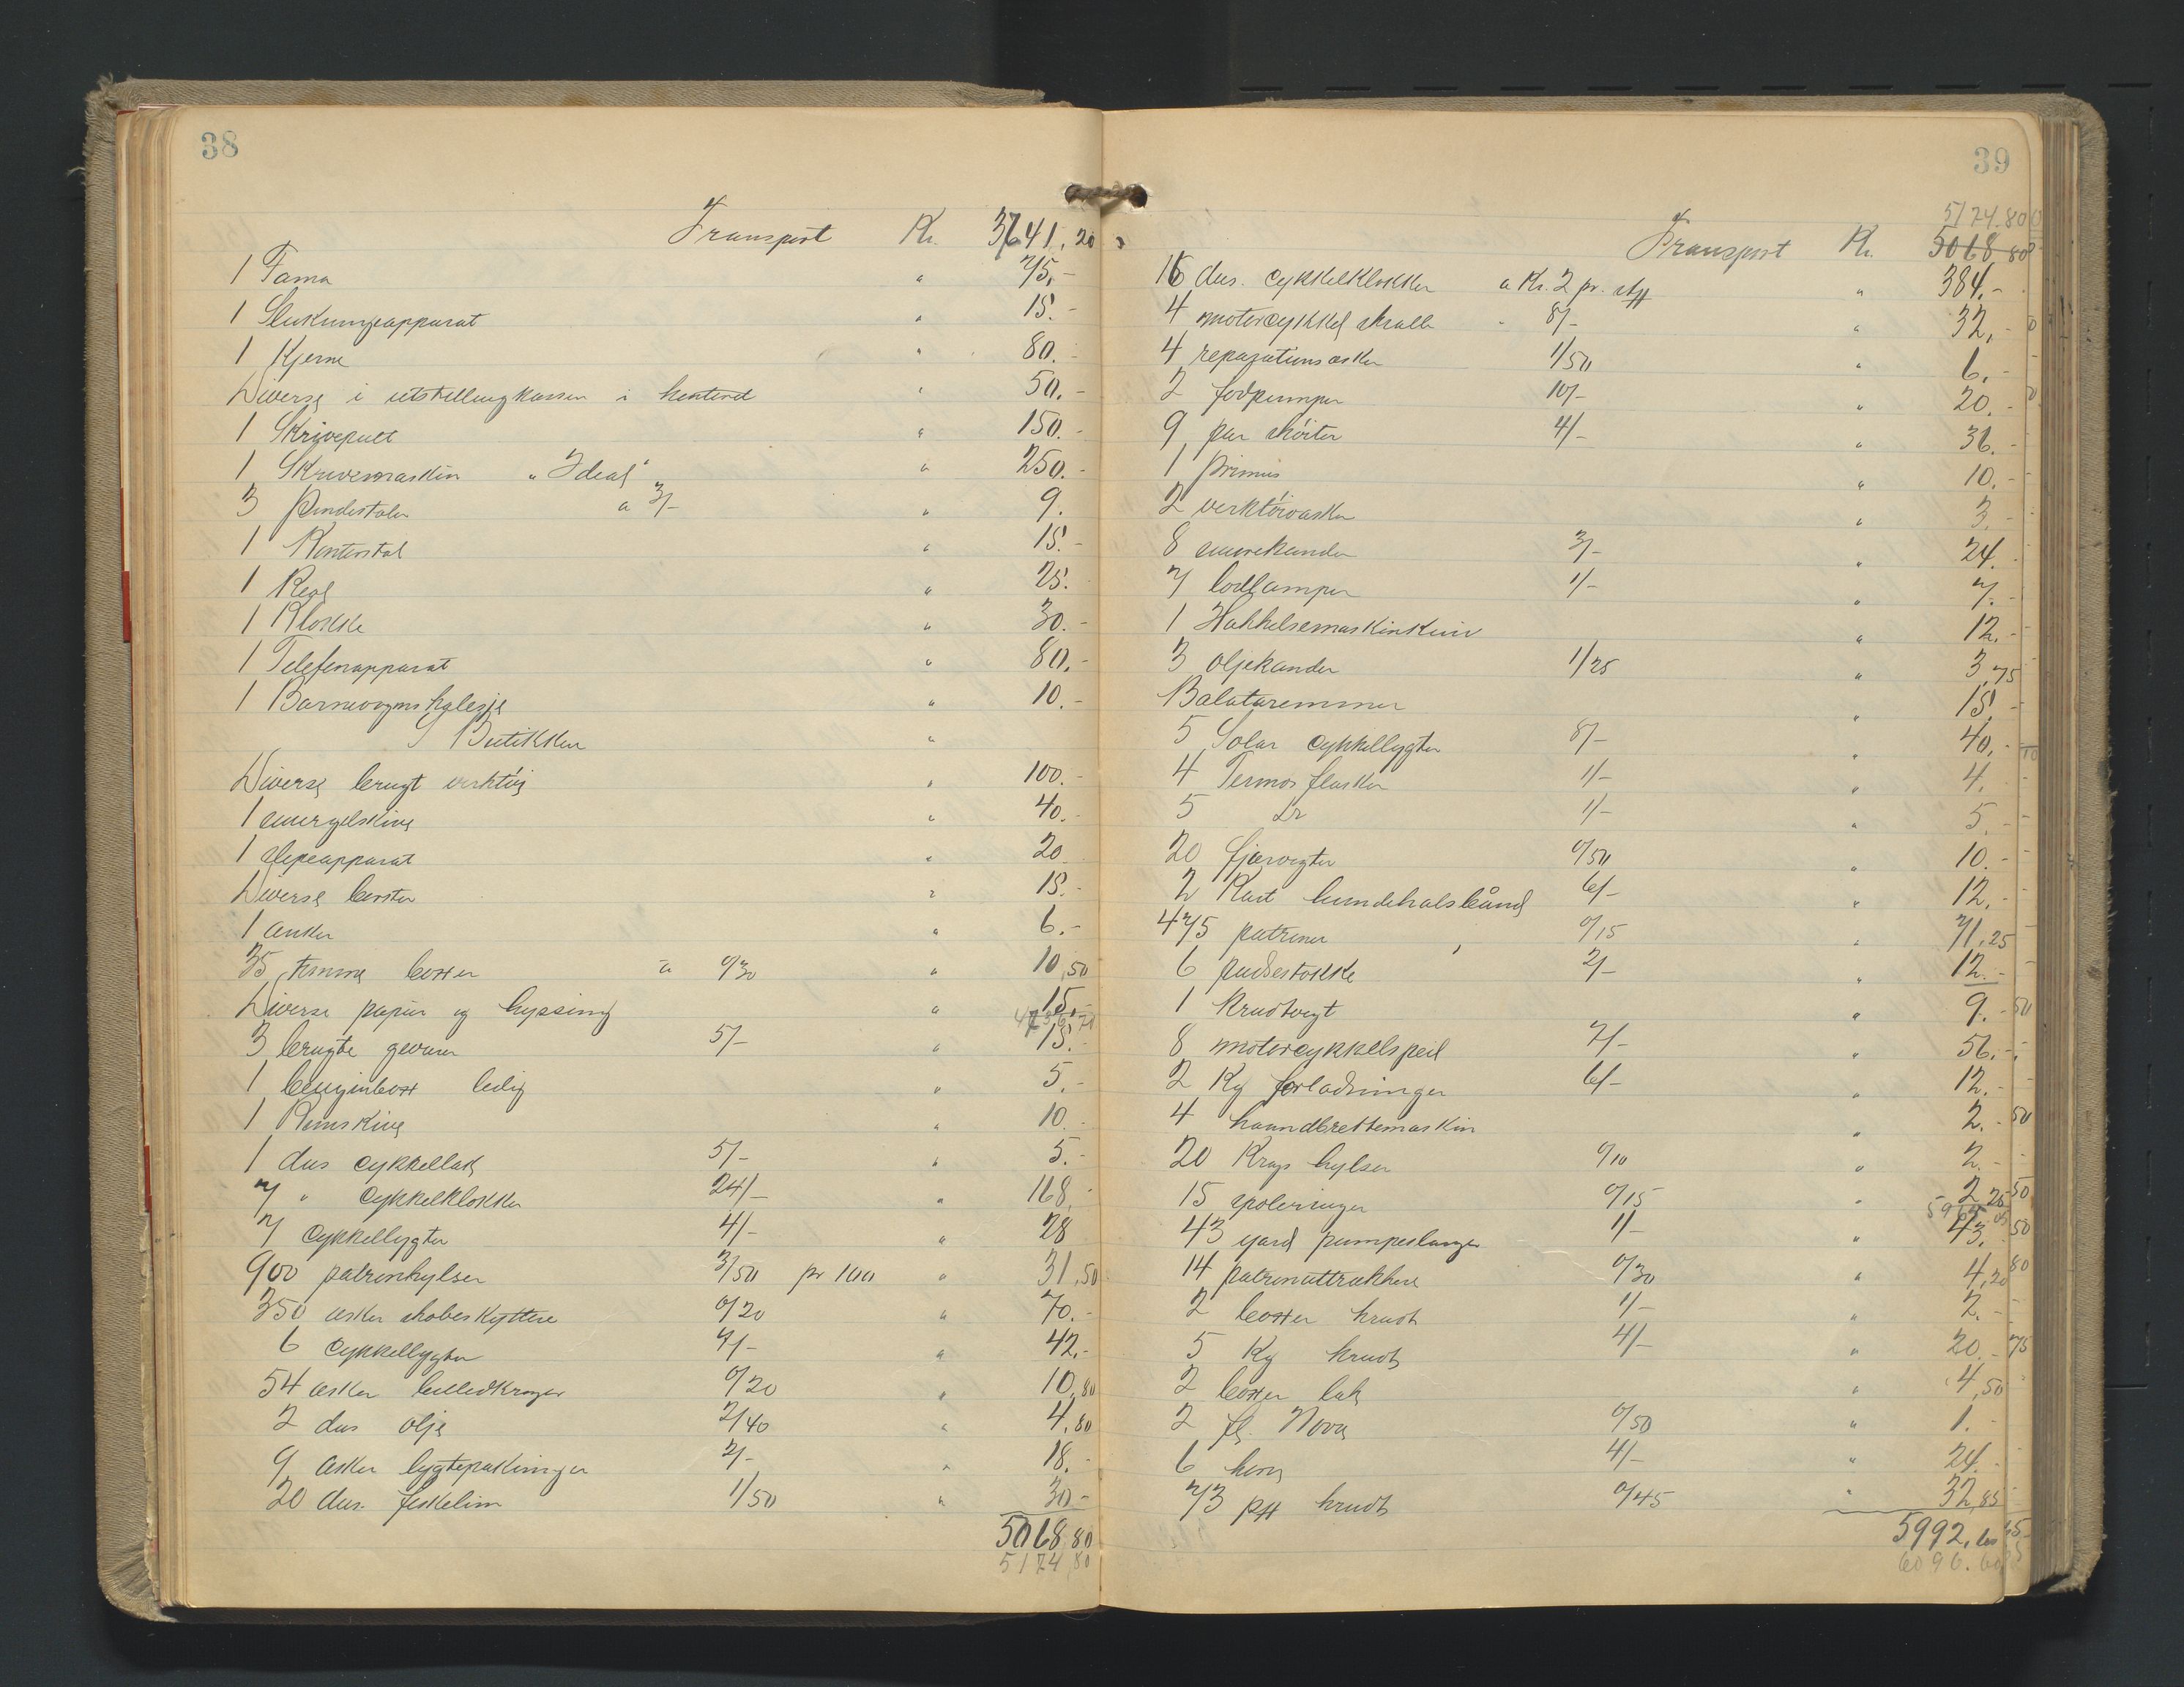 38
Transport Kr. 3641,20
1 Fama " 75,-
1 Slukningsapparat " 15.-
1 Kjerne " 80.-
Diverse i utstillingkassen i kontoret " 50.-
1 Skrivepult " 150.-
1 Skrivemaskin "Ideal" " 250.-
3 Pindestoler a 3/- " 9.
1 Kontorstol " 15.-
1 Reol " 25.
1 Klokke " 30.-
1 Telefonapparat " 80,-
1 Barnevogns " 10.-
I Butikken "
Diverse brugt verktøi " 100.-
1 smergelskive " 40.-
1 slipeapparat " 20
Diverse børster " 15.-
1 anker " 6.-
35 tomme bokser a 0/30 " 10,50
Diverse papir og hyssing " 15,-
3 brugte geværer 5/- " 15.-
1 ledig " 5.-
1 Remskive " 10.-
1 dus cykkellak 5/- " 5.-
7 " cykkelklokker 24/- " 168,-
7 Cykkellygter 4/- " 28
900 patronhylser 3/50 pr 100 " 31,50
350 æsker skobeskyttere 0/20 " 70.-
6 Cykkellygter 7/- " 42,-
54 æsker billedkroger 0/20 " 10,80
2 dus olje 2/40 " 4,80
9 æsker lygtepakninger 2/- " 18.-
20 dus. fiskelim 1/50 " 30.-
5068,80
5174,80
39
5174.80
Transport Kr. 5068,80
16 dus. cykkelklokker a Kr. 2 pr. stk " 384,-
4 motorcykkel skralle - 8/- " 32,-
4 reparationsæsker 1/50 " 6,-
2 fodpumper 10/- " 20.-
9 par skøiter 4/- " 36.-
1 primus " 10,-
2 verktøivæsker " 3.-
8 smørekander 3/- " 24.
7 lodlamper 1/- " 7.-
1 Hakkelsemaskinkniv " 12.-
3 oljekander 1/25 " 3,75
Balataremmer " 15,-
5 Solar cykkellygter 8/- " 40,-
4 Termos flasker 1/- " 4.
5 Do 1/- " 5.-
20 fjærvegter 0/50 " 10.-
2 Kart hundehalsbånd 6/- " 12,-
475 patroner 0/15 " 71,25
6 pudsestokke 2/- " 12.-
1 Krudtvegt " 9.-
8 motorcykkelspeil 7/- " 56.-
2 Kg forladninger 6/- " 12.-
4 haandbrettemaskin " 2.-
20 Krags hylser 0/10 " 2.-
15 spoleringer 0/15 " 2,25
43 yard pumpeslanger 1/- " 43.
14 patronuttrækkere 0/30 " 4,20
2 bokser krudt 1/- " 2.-
5 Kg krudt 4/- " 20.-
2 bokser lak " 4,50
2 fl. Nova 0/50 " 1.-
6 horn 4/- " 24.-
73 pk krudt 0/45 " 32,85
5992,60
6096.60